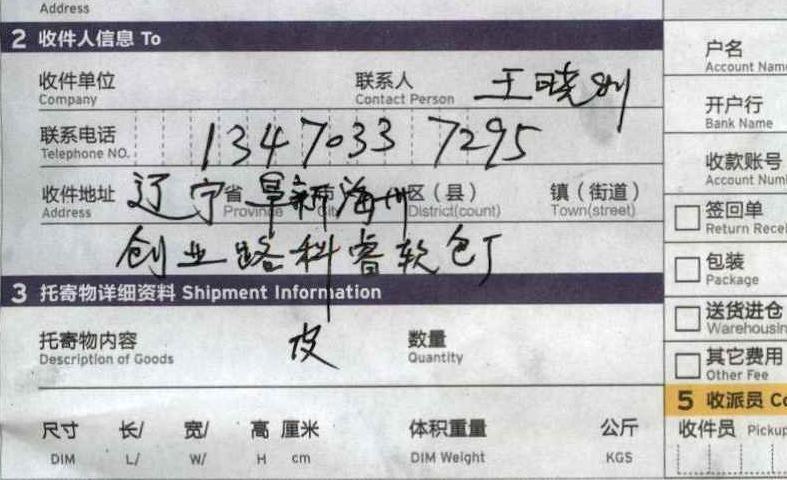 Address
2 收件人信息 To
收件单位 Company 联系人 Contact Person 王晓刚
联系电话 Telephone NO. 1347033 7295
收件地址 Address 辽宁省 Province 阜新 市 City 海州区(县) District(count) 镇(街道) Town(street)
创业路科睿软包厂
3 托寄物详细资料 Shipment Information
托寄物内容 Description of Goods 皮 数量 Quantity
尺寸 长/ 宽/ 高 厘米 体积重量 公斤
DIM L/ W/ H cm DIM Weight KGS
户名
Account Name
开户行
Bank Name
收款账号
Account Num
签回单
Return Recei
包装
Package
送货进仓
Warehousin
其它费用
Other Fee
5 收派员 Co
收件员 Pickup